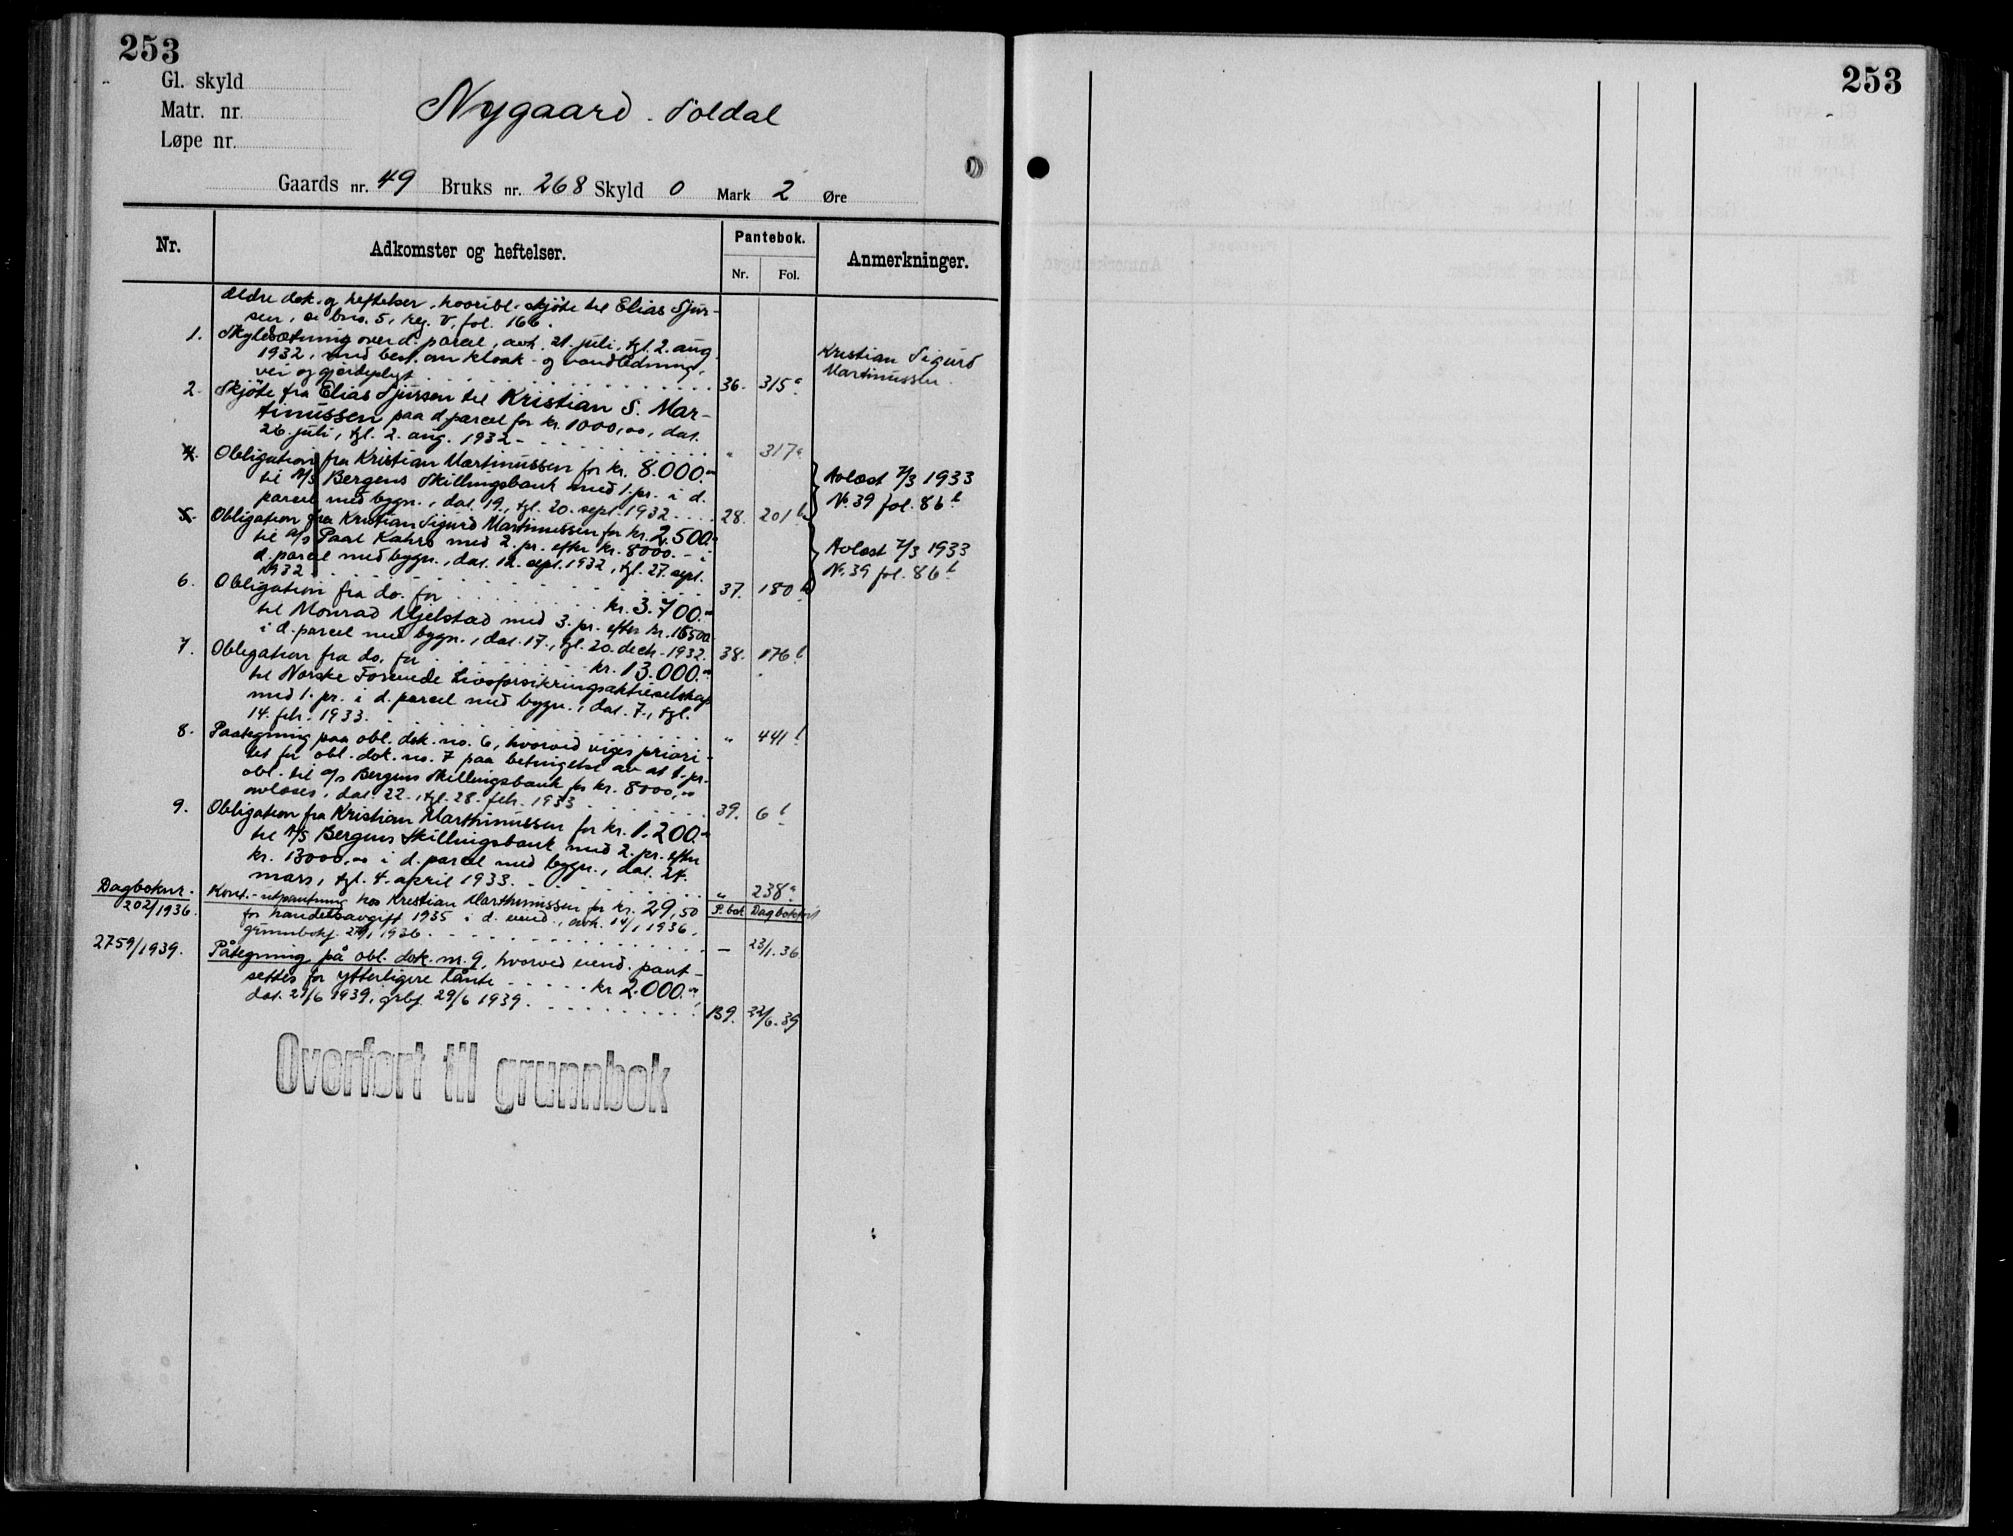 253
Gl. skyld
Matr. nr.
Løpe nr.
Nygaard. Soldal
Gaards nr. 49 Bruks nr. 268 Skyld 0 Mark 2 Øre
Nr.
Adkomster og heftelser.
Pantebok.
Nr.
Fol.
Anmerkninger.
Ældre dok. og heftelser, hvoribl. skjøte til Elias Sjur-
sen, se brno. 5, reg. V, fol. 166.
1. Skyldsætning over d. parcel, avh. 21. juli, tgl. 2. aug.
1932, med best. om kloak- og vandledning,
vei og gjerdepligt 36. 315a
Kristian Sigurd
Martinussen.
2. Skjøte fra Elias Sjurssen til Kristian S. Mar-
tinussen paa d. parcel for kr. 1000,00, dat.
26. juli, tgl. 2. aug. 1932 - " 317a
4. Obligation fra Kristian Martinussen for kr. 8.000.00
til A/S Bergens Skillingsbank med 1. pr. i d.
parcel med bygn., dat. 19., tgl. 20. sept. 1932 28. 201b
Avlæst 7/3 1933
No. 39 fol. 86b
5. Obligation fra Kristian Sigurd Martinussen for kr. 2.500.00
til A/S Paal Kahrs med 2. pr. efter kr. 8000.- i
d. parcel med bygn., dat. 12. sept. 1932, tgl. 27. sept.
1932 37. 180b
Avlæst 7/3 1933
No. 39 fol. 86b
6. Obligation fra do. for kr. 3.700.00
til Monrad Mjelstad med 3. pr. efter kr. 10500
i d. parcel med bygn., dat. 17., tgl. 20. decb. 1932. 38. 176b
7. Obligation fra do. for kr. 13.000.00
til Norske Forenede Livsforsikringsaktieselskap
med 1. pr. i d. parcel med bygn., dat. 7., tgl.
14. feb. 1933. " 441b
8. Paategning paa obl. dok. no. 6, hvorved viges priori-
tet for obl. dok. no. 7 paa betingelse av at 1. pr.
obl. til A/S Bergens Skillingsbank for kr. 8000,00
avløses, dat. 22., tgl. 28. feb. 1933 39. 6b
9. Obligation fra Kristian Marthinussen for kr. 1.200.00
til A/S Bergens Skillingsbank med 2. pr. efter
kr. 13000,00 i d. parcel med bygn., dat. 24.
mars, tgl. 4. april 1933. " 238a
Dagboknr.
202/1936.
P. bok Dagbokført
Kont.- utpantning hos Kristian Marthinussen for kr. 29,50
for handelsavgift 1935 i d. eiend., avh. 14/1 1936,
grunnbokf. 1936. — 23/1. 36
2759/1939. Påtegning på obl. dok. nr. 9, hvorved eiend. pant-
settes for ytterligere lånte kr 2.000.00,
dat. 21/6 1939, grbf. 29/6 1939. B9. 22/6. 39
Overført til grunnbok
253